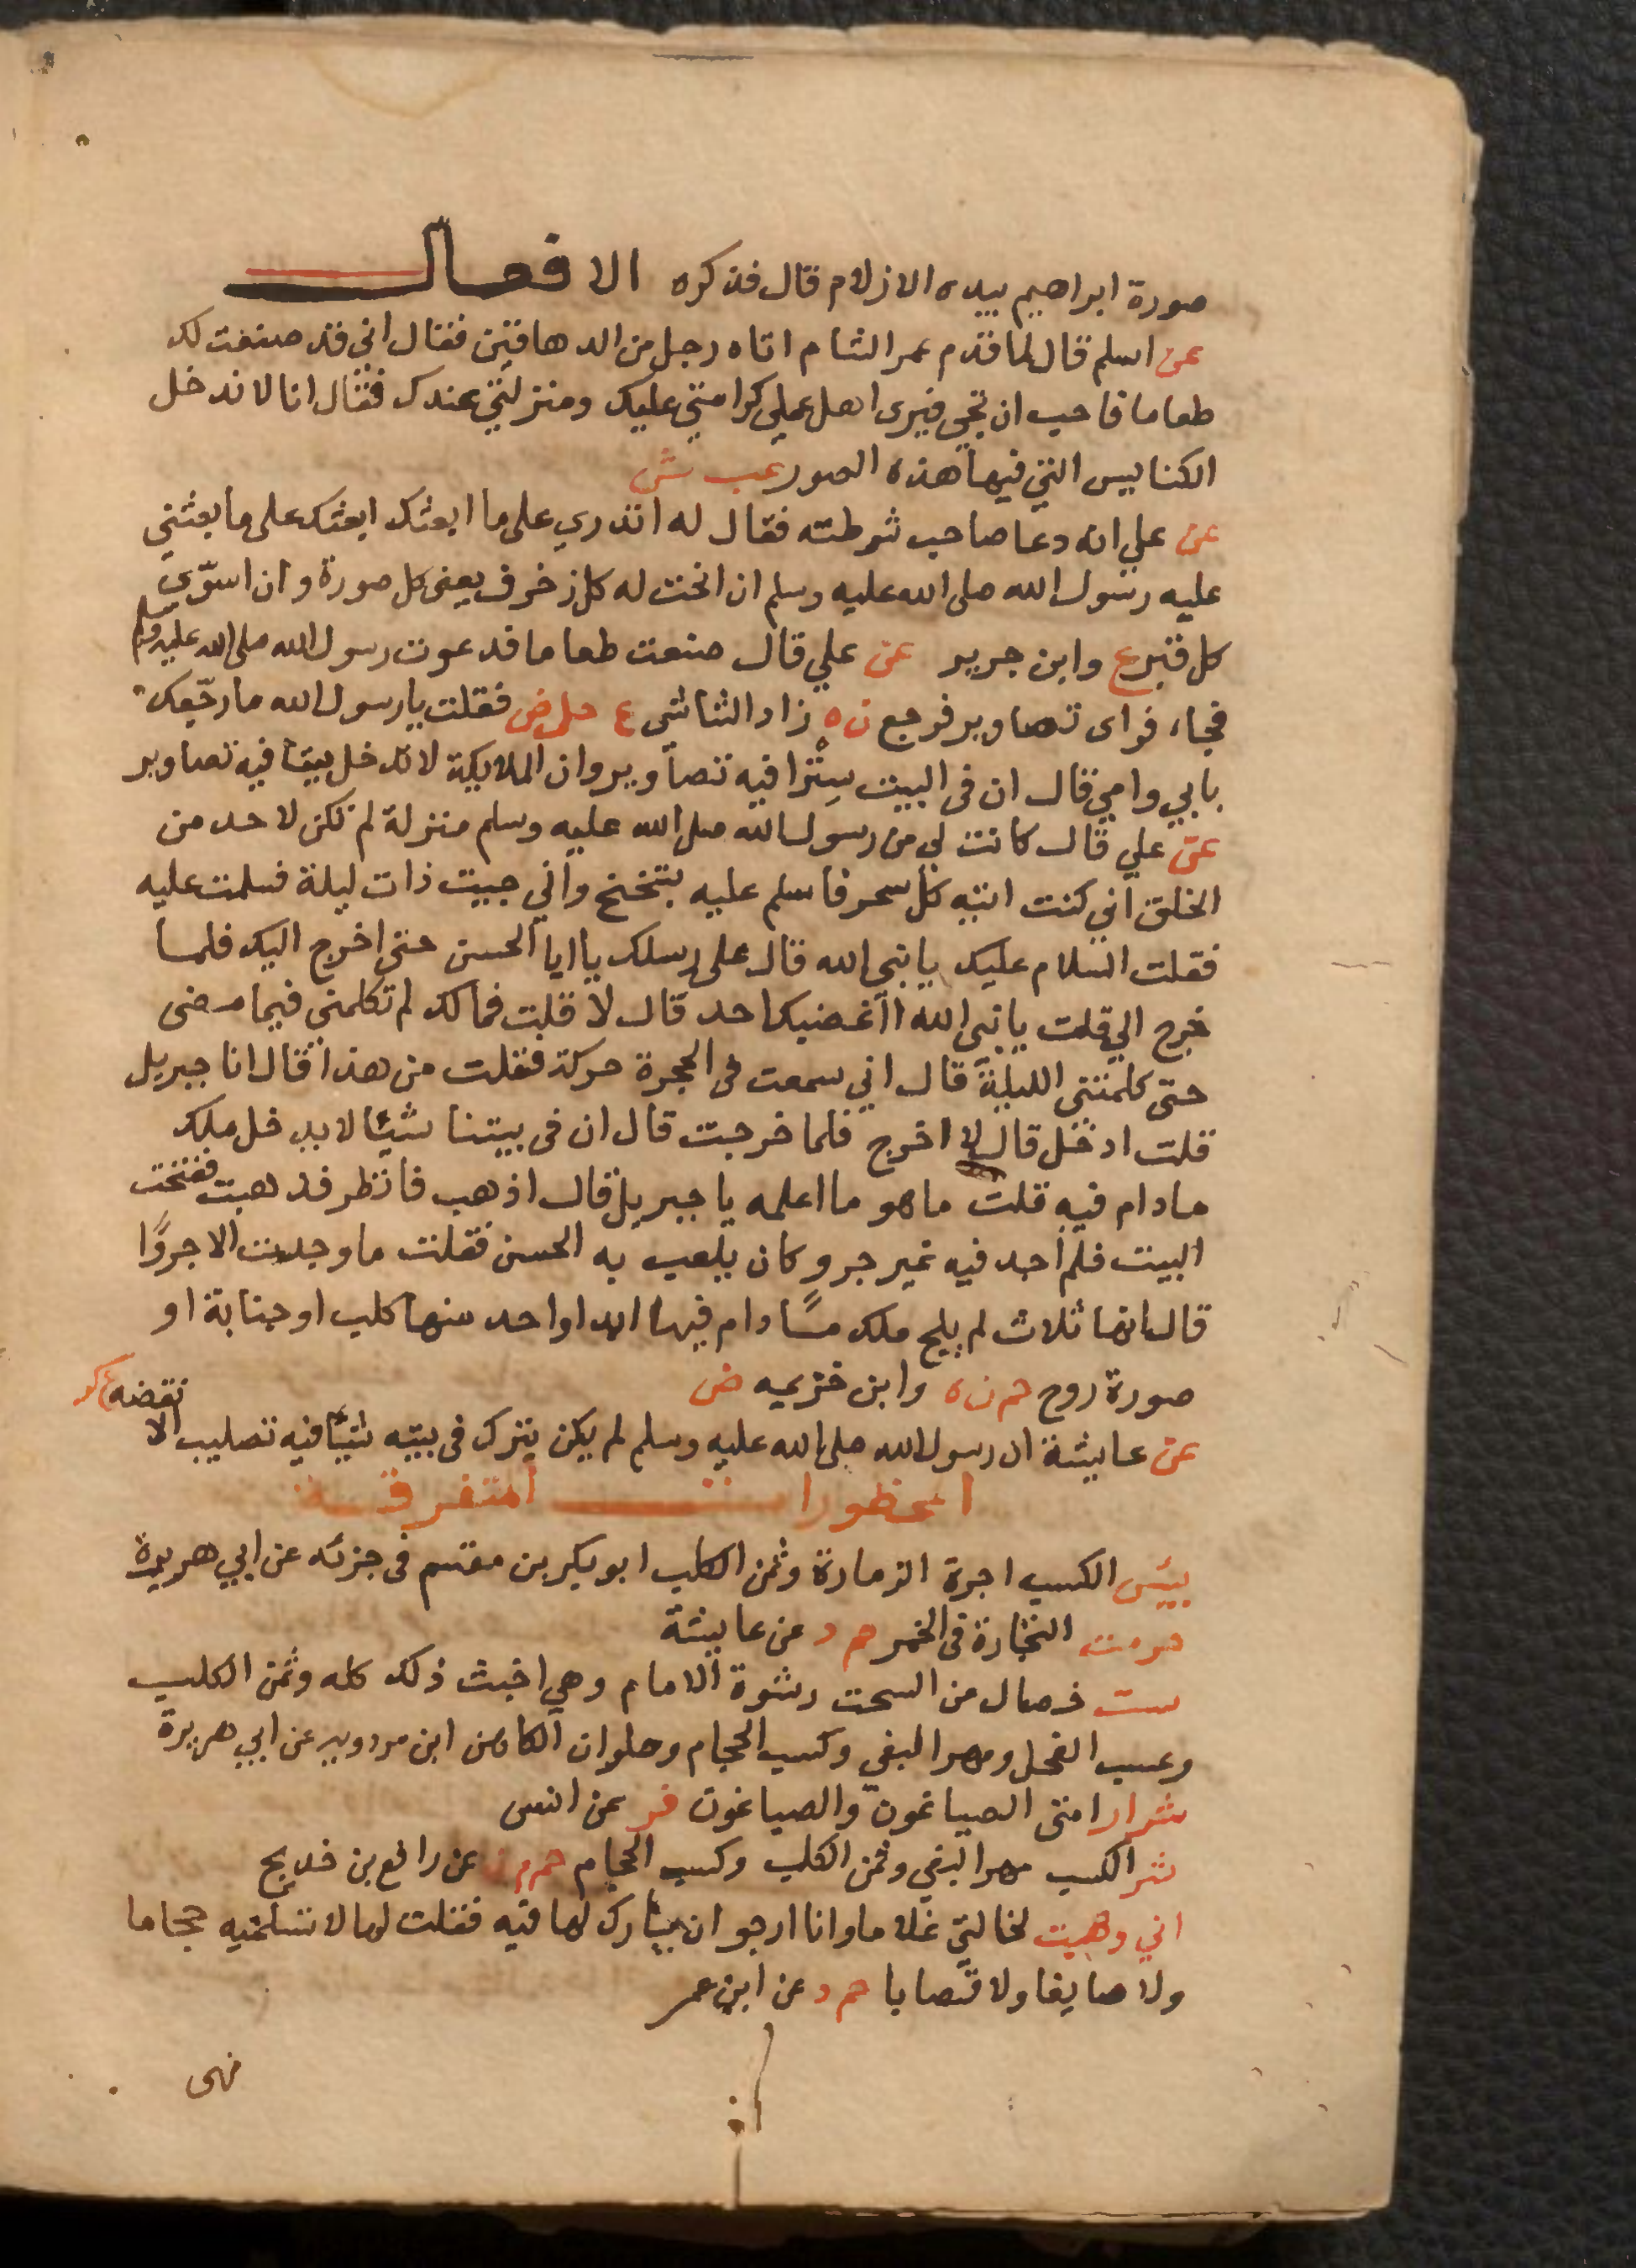 صورة ابراهيم بيده الازلام قال فذكره الافعال
عن اسلم قال لما قدم عمر الشام اتاه رجل من الدهاقين فقال اني قد صنعت لك
طعاما فاحب ان تجي فيرى اهل عملي كرامتي عليك ومنزلتي عندك فقال انا لا ندخل
الكنايس التي فيها هذه الصور عب ش
عن علي انه دعا صاحب شرطته فقال له اتدري على ما ابعثك ابعثك على ما بعثني
عليه رسول الله صلى الله عليه وسلم ان انحت له كل زخرف يعنى كل صورة وان اسوّي
كل قبر ع وابن جرير عن علي قال صنعت طعاما فدعوت رسول الله صلى الله عليه وسلم
فجاء فراى تصاوير فرجع ن ه زاد الشاشى ع حل ض فقلت يا رسول الله ما رجّعك
بابي وامي قال ان فى البيت سِتْرا فيه تصاوير وان الملايكة لا تدخل بيتا فيه تصاوير
عن علي قال كانت لي من رسول الله صلى الله عليه وسلم منزلة لم تكن لاحد من
الخلق اني كنت اتيه كل سحر فاسلم عليه بتخنخ واني جييت ذات ليلة فسلمت عليه
فقلت السلام عليك يا نبي الله قال على رسلك يا ابا الحسن حتى اخرج اليك فلما
خرج الي قلت يا نبي الله ااغضبك احد قال لا قلت فمالك لم تكلمني فيما مضى
حتى كلمتني الليلة قال اني سمعت فى الحجرة حركة فقلت من هذا قال انا جبريل
قلت ادخل قال لا اخرج فلما خرجت قال ان فى بيتنا شيئا لا يدخل ملك
مادام فيه قلت ما هو ما اعلمه يا جبريل قال اذهب فانظر فذهبت ففتحت
البيت فلم اجد فيه غير جرو كان يلعب به الحسن فقلت ما وجدت الا جروًا
قال انها ثلاث لم يلج ملك مادام فيها ابدا واحد منها كلب او جنابة او
صورة روح حم ن ه وابن خزيمه ض
عن عايشة ان رسول الله صلى الله عليه وسلم لم يكن يترك فى بيته شيئا فيه تصليب الا نقضه كر
المحظورات المتفرقة
بيئس الكسب اجرة الزمارة وثمن الكلب ابو بكر بن مقسم فى جزئه عن ابي هريرة
حرمت التجارة فى الخمر حم د عن عايشة
ست خصال من السحت رشوة الامام وهي اخبث ذلك كله وثمن الكلب
وعسب الفحل ومهر البغي وكسب الحجام وحلوان الكاهن ابن مردويه عن ابي هريرة
شرار امتى الصياغون والصباغون فر عن انس
شر الكسب مهر البغي وثمن الكلب وكسب الحجام حم م ن عن رافع بن خديج
اني وهبت لخالتي غلاما وانا ارجو ان يبارك لها فيه فقلت لها لا تسلميه حجاما
ولا صايغا ولا قصابا حم د عن ابن عمر
نهى